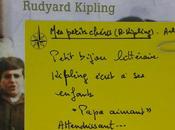 Rudyard Kipling
Mes petits chéris (R. Kipling).
Petit bijou littéraire
Kipling écrit à ses
enfants
"Papa aimant"
Attendrissant...